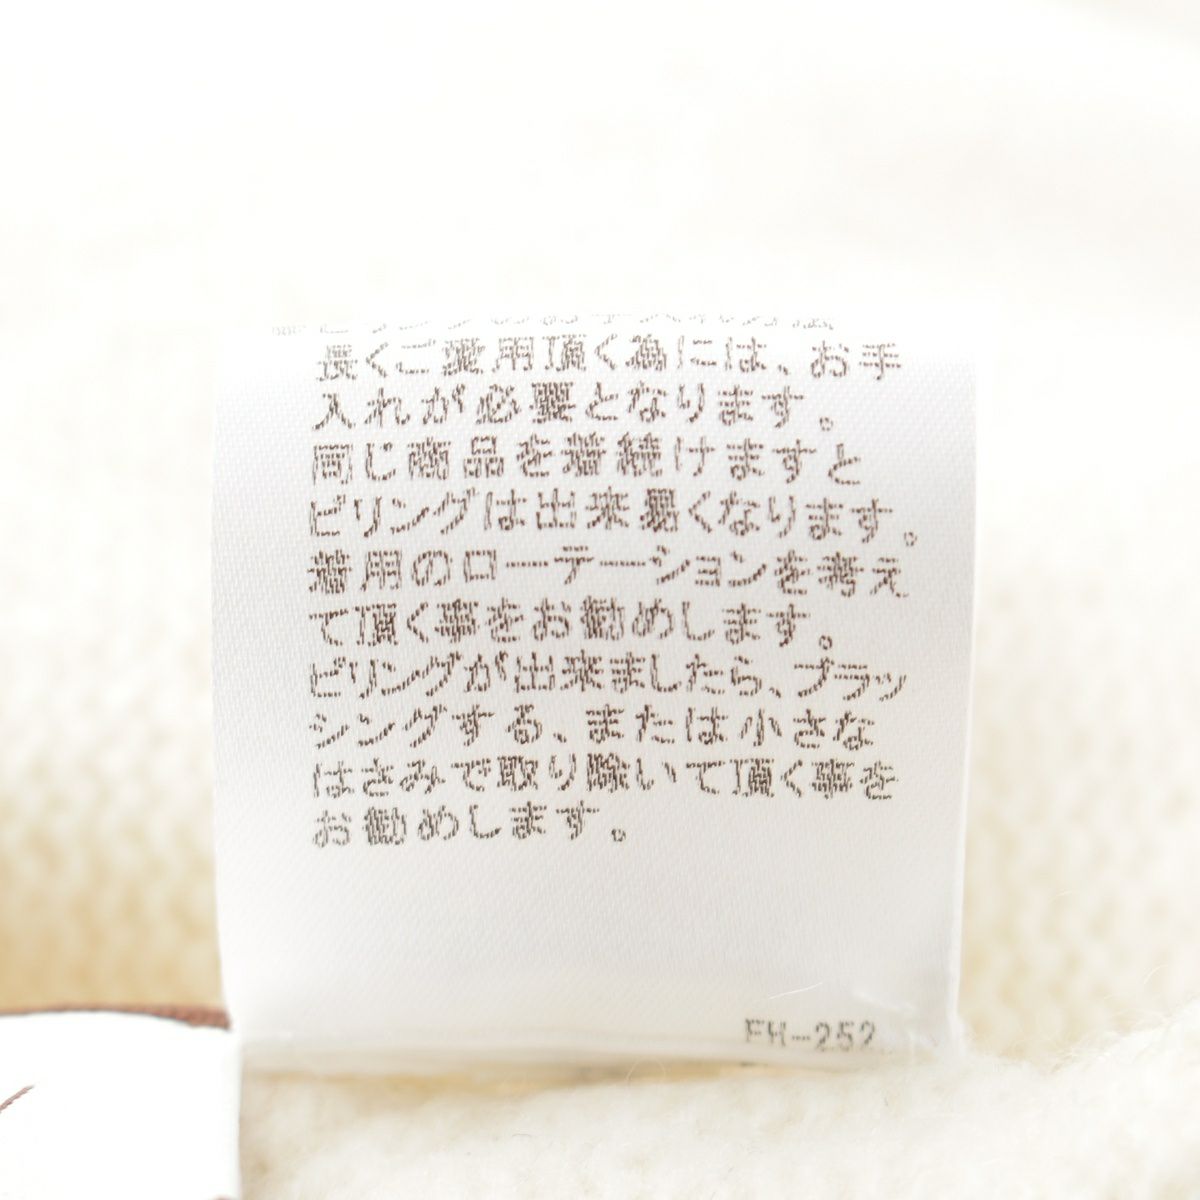 長くご愛用頂く為には、お手
入れが必要となります。
同じ商品を着続けますと
ピリングは出来易くなります。
着用のローテーションを考え
て頂く事をお勧めします。
ピリングが出来ましたら、ブラッ
シングする、または小さな
はさみで取り除いて頂く事を
お勧めします。
FH-252